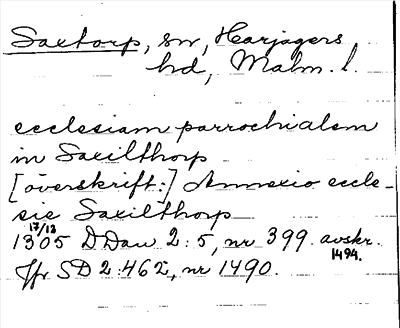 Saxtorp, sn, Harjagers
hd, Malm. l.
ecclesiam parrochialem
in Saxilthorp
[överskrift:] Annexio eccle-
sie Saxilthorp
17/12
1305 DDan 2:5, nr 399. avskr.
1494.
Jfr SD 2:462, nr 1490.